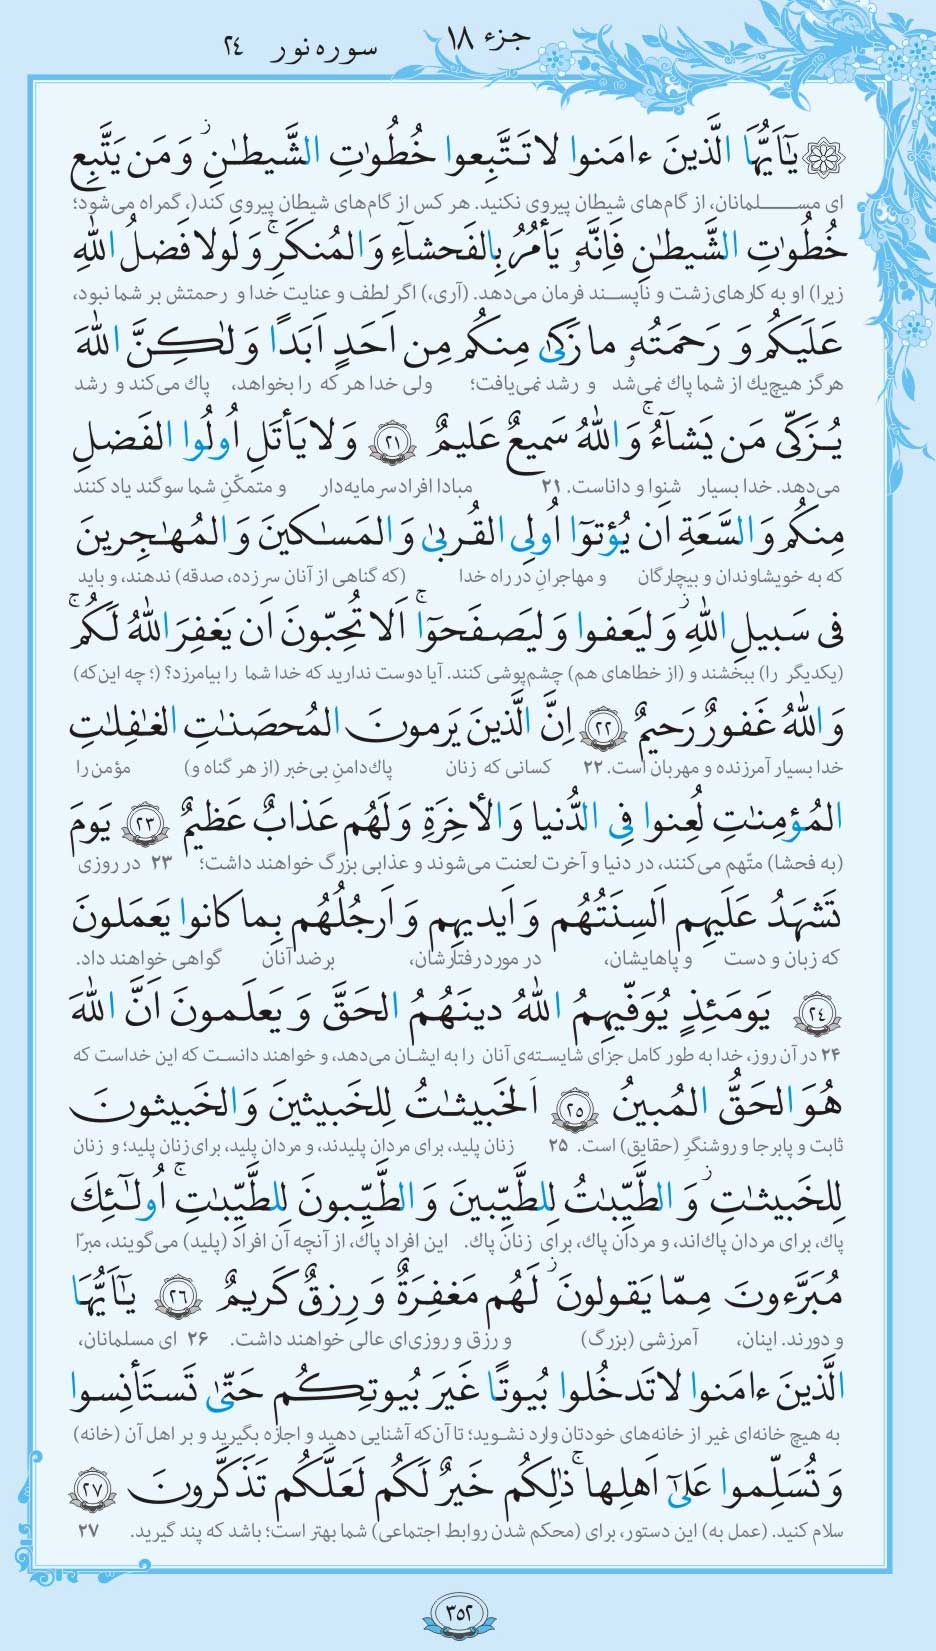 جزء ۱۸ سوره نور ۲۴
يٰٓاَيُّهَا الَّذينَ ءامَنوا لاتَتَّبِعوا خُطُوٰتِ الشَّيطٰنِ ۚ وَمَن يَتَّبِع
ای مسلمانان، از گام‌های شیطان پیروی نکنید. هر کس از گام‌های شیطان پیروی کند(، گمراه می‌شود؛
خُطُوٰتِ الشَّيطٰنِ فَاِنَّهُۥ يَأمُرُ بِالفَحشآءِ وَالمُنكَرِ ۚ وَلَولا فَضلُ اللّٰهِ
زیرا) او به کارهای زشت و ناپسند فرمان می‌دهد. (آری،) اگر لطف و عنایت خدا و رحمتش بر شما نبود،
عَلَيكُم وَ رَحمَتُهُۥ ما زَكىٰ مِنكُم مِن اَحَدٍ اَبَدًا وَلٰكِنَّ اللّٰهَ
هرگز هیچ‌یك از شما پاك نمی‌شد و رشد نمی‌یافت؛ ولی خدا هر که را بخواهد، پاك می‌کند و رشد
يُزَكّى مَن يَشآءُ ۚ وَاللّٰهُ سَميعٌ عَليمٌ ﴿۲۱﴾ وَلا يَأتَلِ اُولُوا الفَضلِ
می‌دهد. خدا بسیار شنوا و داناست. ۲۱ مبادا افراد سرمایه‌دار و متمکّنِ شما سوگند یاد کنند
مِنكُم وَالسَّعَةِ اَن يُؤتوٓا اُولِى القُربىٰ وَالمَسٰكينَ وَالمُهٰجِرينَ
که به خویشاوندان و بیچارگان و مهاجرانِ در راه خدا (که گناهی از آنان سر زده، صدقه) ندهند، و باید
فى سَبيلِ اللّٰهِ ۚ وَليَعفوا وَليَصفَحوٓا ۚ اَلا تُحِبّونَ اَن يَغفِرَ اللّٰهُ لَكُم ۚ
(یکدیگر را) ببخشند و (از خطاهای هم) چشم‌پوشی کنند. آیا دوست ندارید که خدا شما را بیامرزد؟ (؛ چه این‌که)
وَاللّٰهُ غَفورٌ رَحيمٌ ﴿۲۲﴾ اِنَّ الَّذينَ يَرمونَ المُحصَنٰتِ الغٰفِلٰتِ
خدا بسیار آمرزنده و مهربان است. ۲۲ کسانی که زنان پاك‌دامنِ بی‌خبر (از هر گناه و) مؤمن را
المُؤمِنٰتِ لُعِنوا فِى الدُّنيا وَالأخِرَةِ وَلَهُم عَذابٌ عَظيمٌ ﴿۲۳﴾ يَومَ
(به فحشا) متّهم می‌کنند، در دنیا و آخرت لعنت می‌شوند و عذابی بزرگ خواهند داشت؛ ۲۳ در روزی
تَشهَدُ عَلَيهِم اَلسِنَتُهُم وَ اَيديهِم وَ اَرجُلُهُم بِما كانوا يَعمَلونَ
که زبان و دست و پاهایشان، در مورد رفتارشان، بر ضد آنان گواهی خواهند داد.
﴿۲۴﴾ يَومَئِذٍ يُوَفّيهِمُ اللّٰهُ دينَهُمُ الحَقَّ وَ يَعلَمونَ اَنَّ اللّٰهَ
۲۴ در آن روز، خدا به طور کامل جزای شایسته‌ی آنان را به ایشان می‌دهد، و خواهند دانست که این خداست که
هُوَ الحَقُّ المُبينُ ﴿۲۵﴾ اَلخَبيثٰتُ لِلخَبيثينَ وَالخَبيثونَ
ثابت و پابرجا و روشنگرِ (حقایق) است. ۲۵ زنان پلید، برای مردان پلیدند، و مردان پلید، برای زنان پلید؛ و زنان
لِلخَبيثٰتِ ۖ وَالطَّيِّبٰتُ لِلطَّيِّبينَ وَالطَّيِّبونَ لِلطَّيِّبٰتِ ۚ اُولٰٓئِكَ
پاك، برای مردان پاك‌اند، و مردان پاك، برای زنان پاك. این افراد پاك، از آنچه آن افراد (پلید) می‌گویند، مبرّا
مُبَرَّءونَ مِمّا يَقولونَ ۖ لَهُم مَغفِرَةٌ وَ رِزقٌ كَريمٌ ﴿۲۶﴾ يٰٓاَيُّهَا
و دورند. اینان، آمرزشی (بزرگ) و رزق و روزی‌ای عالی خواهند داشت. ۲۶ ای مسلمانان،
الَّذينَ ءامَنوا لا تَدخُلوا بُيوتًا غَيرَ بُيوتِكُم حَتّىٰ تَستَأنِسوا
به هیچ خانه‌ای غیر از خانه‌های خودتان وارد نشوید؛ تا آن‌که آشنایی دهید و اجازه بگیرید و بر اهل آن (خانه)
وَ تُسَلِّموا عَلىٰٓ اَهلِها ۚ ذٰلِكُم خَيرٌ لَكُم لَعَلَّكُم تَذَكَّرونَ ﴿۲۷﴾
سلام کنید. (عمل به) این دستور، برای (محکم شدن روابط اجتماعی) شما بهتر است؛ باشد که پند گیرید. ۲۷
۳۵۲